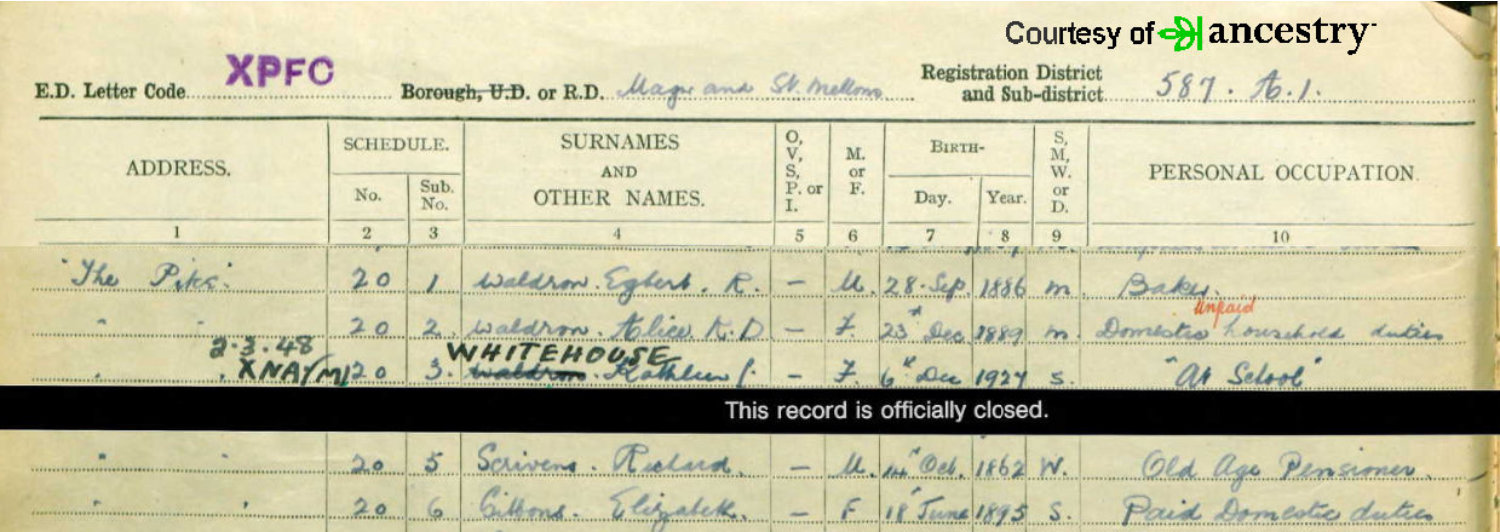 Courtesy of ancestry
E.D. Letter Code XPFC Borough, U.D. or R.D. Magor and St. Mellons Registration District and Sub-district 587. A.1.
ADDRESS. SCHEDULE. No. Sub. No. SURNAMES AND OTHER NAMES. O, V, S, P. or I. M. or F. BIRTH- Day. Year. S, M, W. or D. PERSONAL OCCUPATION.
1 2 3 4 5 6 7 8 9 10
20 1 Waldron. Egbert. R. - M. 28. Sep. 1886 m
" 20 2. Waldron. Alice. - F. 23 Dec 1889 m. Domestic household duties
Unpaid
2.3.48 WHITEHOUSE
" XNAY(M) 20 3. Waldron. Kathleen - F. 6" Dec 1927 S. "At School"
This record is officially closed.
" 20 5 Scrivens. Richard. - M. 14" Oct. 1862 W. Old Age Pensioner.
" 20 6 Gibbons. Elizabeth. - F 18" June 1895 S. Paid Domestic duties